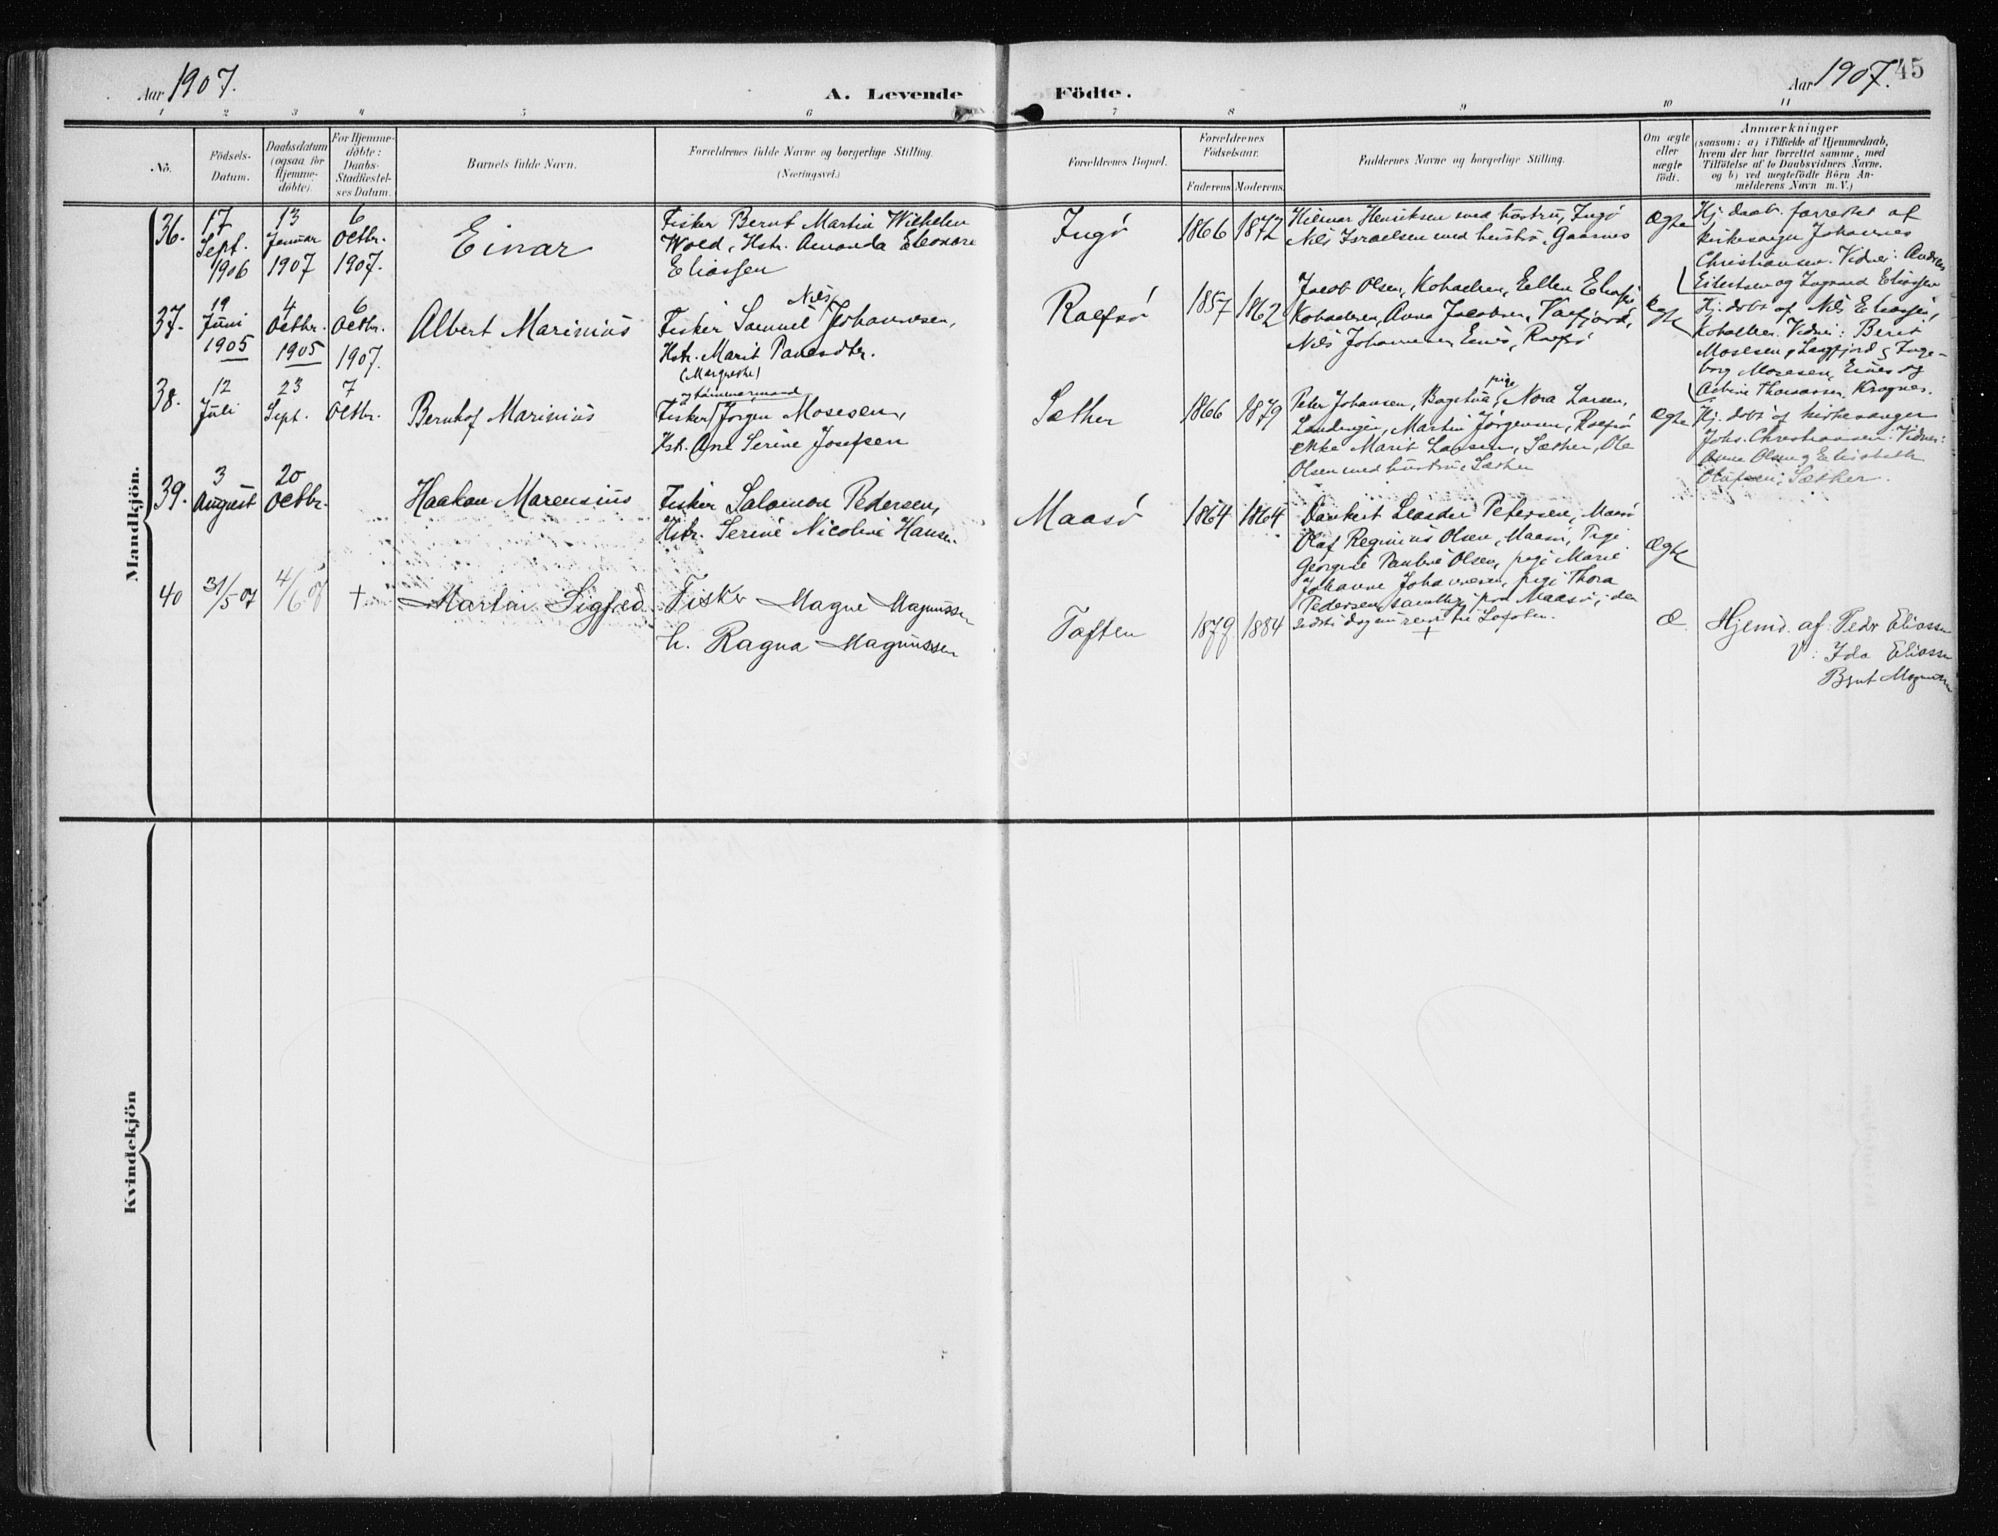 Aar 1907.
A. Levende Födte.
Aar 1907. 45
1 2 3 4 5 6 7 8 9 10 11
No.
Födsels-
Datum.
Daabsdatum
(ogsaa for
Hjemme-
döbte).
For Hjemme-
döbte:
Daabs-
Stadfæstel-
ses Datum.
Barnets fulde Navn.
Forældrenes fulde Navne og borgerlige Stilling.
(Næringsvei.)
Forældrenes Bopæl.
Forældrenes
Födselsaar.
Faderens Moderens
Faddernes Navne og borgerlige Stilling.
Om ægte
eller
uægte
födt.
Anmærkninger
(saasom: a) i Tilfælde af Hjemmedaab,
hvem der har forrettet samme, med
Tilföielse af to Daabsvidners Navne,
og b) ved uægtefödte Börn An-
melderens Navn m. V.)
Mandkjön.
36.
17
Sept.
1906
13
Januar
1907
6
Octbr.
1907.
Einar
Fisker Bernt Martin Wilhelm
Wold, Hstr. Amanda Eleonore
Eliassen
Ingö
1866 1872
Hilmar Henriksen med hustru, Ingö
Nils Israelsen med hustru, Gaasnes
Ægte
Hj. daab forrettet af
kirkesanger Johannes
Christiansen. Vidner: Andreas
Eilertsen og Ingvard Eliassen
37.
19
Juni
1905
4
Octbr.
1905
6
Octbr.
1907.
Albert Marinius
Nils
Fisker Samuel Johannesen,
Hstr. Marit Povelsdtr.
(Margrethe)
Rolfsö
1857 1862
Jacob Olsen, Kobaelven, Ellen
Kobaelven, Anna Jacobsen,
Nils Johannesen, Rolfsö
Ægte
Hj. döbt af Nils Eliassen,
Kobaelven. Vidner: Berit
Mosesen, Langfjord & Inge-
borg Mosesen,
Thomassen
38.
12
Juli
23
Sept.
7
Octbr.
Bernhof Marinius
og tömmermand
Fisker Jörgen Mosesen,
Hstr. Ane Serine Josefsen
Sæther
1866 1879
pige
Peter Johansen, Nora Larsen,
Martin Jörgensen, Rolfsö
enke Marit Larsen, Sæther, Ole
Olsen med hustru, Sæther
Ægte
Hj. döbt af kirkesanger
Johs. Christiansen. Vidner:
Anne Olsen & Elisabeth
Olufsen, Sæther.
39.
3
August
20
Octbr.
Haakon Marensius
Fisker Salomon Pedersen,
Hstr. Serine Nicoline Hansen
Maasö
1864 1864
Dankert Leander Petersen, Maasö
Olaf Reginius Olsen, Maasö, Pige
Georgine Pauline Olsen, pige Marie
Johanne Johannesen, pige Thora
Pedersen, samtlige paa Maasö, den
sidste dog nu reist til Lofoten.
Ægte
40
31/5 07
4/6 07
+
Martin Sigfred
Fisker Magne Magnussen
h. Ragna Magnussen
Toften
1879 1884
+
Æ.
Hjemd. af Peder Eliassen
V: Ida Eliassen
Bernt Magnussen
Kvindekjön